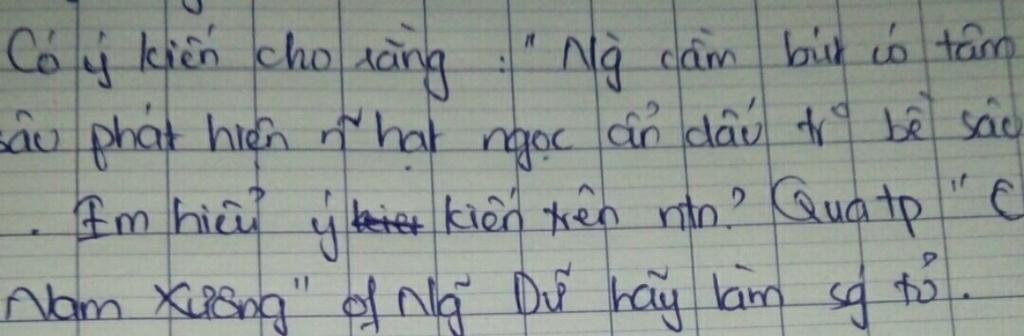 Có ý kiến cho rằng : " Ng̀ cầm bút có tâm
sâu phát hiện n~ hạt ngọc ẩn dấu tr° bề sâu
. Em hiểu ý kiến trên ntn? Qua tp " C
Nam Xương" of Ng~ Dữ hãy làm sg tỏ.